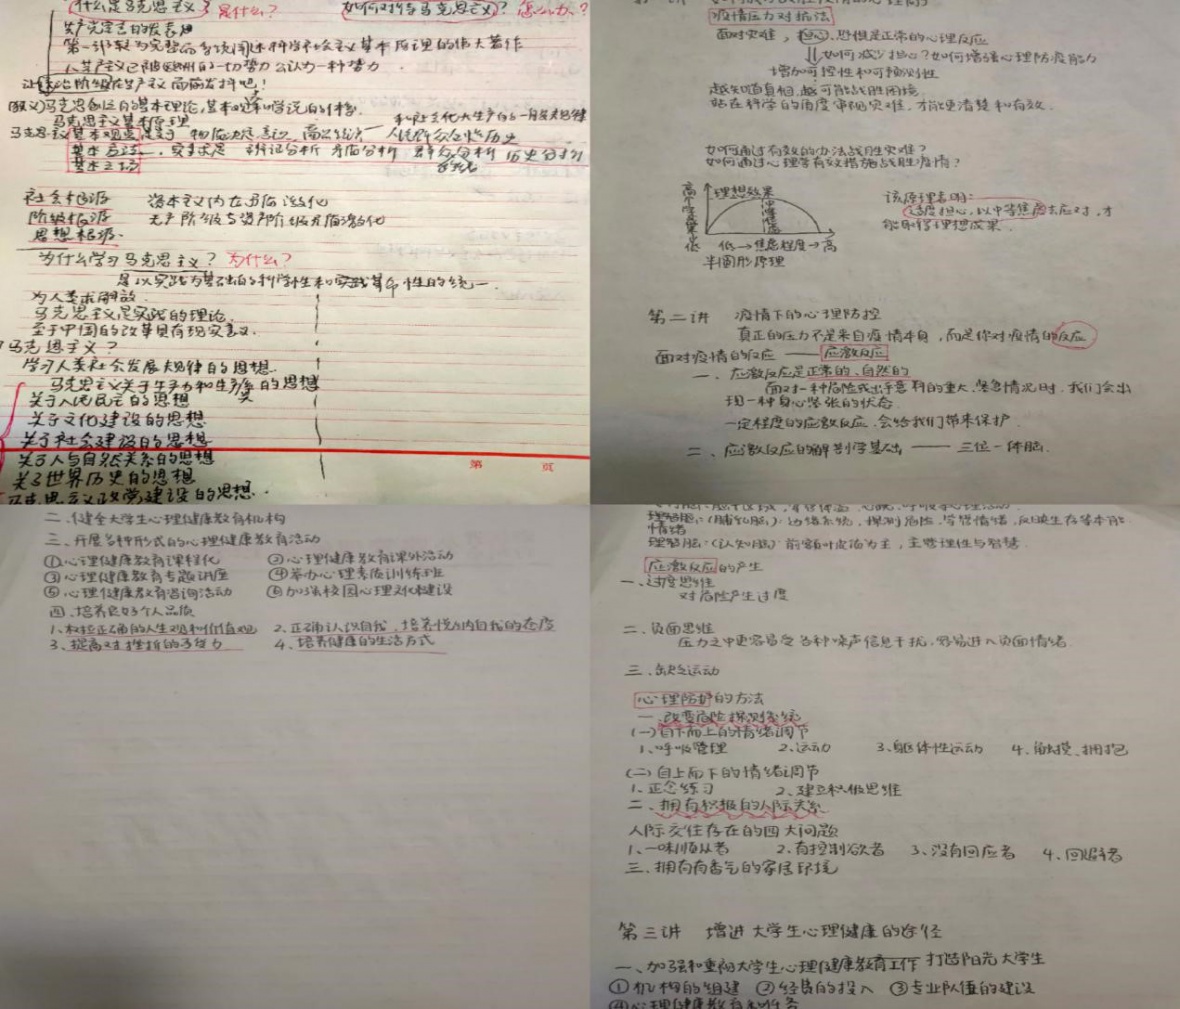 什么是马克思主义? 是什么? 如何对待马克思主义? 怎么办?
共产党宣言的发表
第一部较为完整而系统阐述科学社会主义基本原理的伟大著作
让统治阶级在共产主义面前发抖吧!
马克思主义基本原理
基本方法 实事求是 辩证分析 矛盾分析 历史分析
基本立场
社会根源 资本主义内在矛盾激化
阶级根源 无产阶级与资产阶级矛盾激化
思想根源
为什么学习马克思主义? 为什么?
是以实践为基础的科学性和革命性的统一.
为人类求解放.
马克思主义是实践的理论.
至于中国的改革具有现实意义.
马克思主义?
学习人类社会发展规律的思想.
马克思主义关于生产力和生产关系的思想
关于人民民主的思想
关于文化建设的思想
关于社会建设的思想
关于人与自然关系的思想
关于世界历史的思想
马克思主义政党建设的思想.
第 页
疫情压力对抗法
面对灾难,担心、恐惧是正常的心理反应
如何减少担心?如何增强心理防疫能力
增加可控性和可预测性
越知道真相,越可能战胜困境
站在科学的角度审视灾难,才能更清楚和有效.
如何通过有效的办法战胜灾难?
如何通过心理学有效措施战胜疫情?
高 理想效果
低 低→焦虑程度→高
半圆形原理
该原理表明:
适度担心,以中等焦虑去应对,才
能取得理想成果.
第二讲 疫情下的心理防控
真正的压力不是来自疫情本身,而是你对疫情的反应
面对疫情的反应 —— 应激反应
一、应激反应是正常的、自然的
面对一种危险或出乎意料的重大、紧急情况时,我们会出
现一种身心紧张的状态
一定程度的应激反应,会给我们带来保护.
二、应激反应的解剖学基础 —— 三位一体脑.
二、健全大学生心理健康教育机构
三、开展多种形式的心理健康教育活动
①心理健康教育课程化 ②心理健康教育课外活动
③心理健康教育专题讲座 ④举办心理素质训练班
⑤心理健康教育咨询活动 ⑥加强校园心理文化建设
四、培养良好个人品质
1、树立正确的人生观和价值观 2、正确认识自我,培养悦纳自我的态度
3、提高对挫折的承受力 4、培养健康的生活方式
情绪脑:(哺乳脑):边缘系统,探测危险,掌管情绪,反映生存等本能
情绪
理智脑:(认知脑)前额叶皮质为主,主管理性与智慧.
应激反应的产生
一、过度思维
对危险产生过度
二、负面思维
压力之中更容易受各种噪声信息干扰,容易进入负面情绪.
三、缺乏运动
心理防护的方法
一、改变危险探测系统
(一)自下而上的情绪调节
1、呼吸管理 2、运动 3、躯体性运动 4、触摸、拥抱
(二)自上而下的情绪调节
1、正念练习 2、建立积极思维
二、拥有积极的人际关系
人际交往存在的四大问题
1、一味顺从者 2、有控制欲者 3、没有回应者 4、回避者
三、拥有有香气的家居环境
第三讲 增进大学生心理健康的途径
一、加强和重视大学生心理健康教育工作 打造阳光大学生
①机构的组建 ②经费的投入 ③专业队伍的建设
④心理健康教育和任务